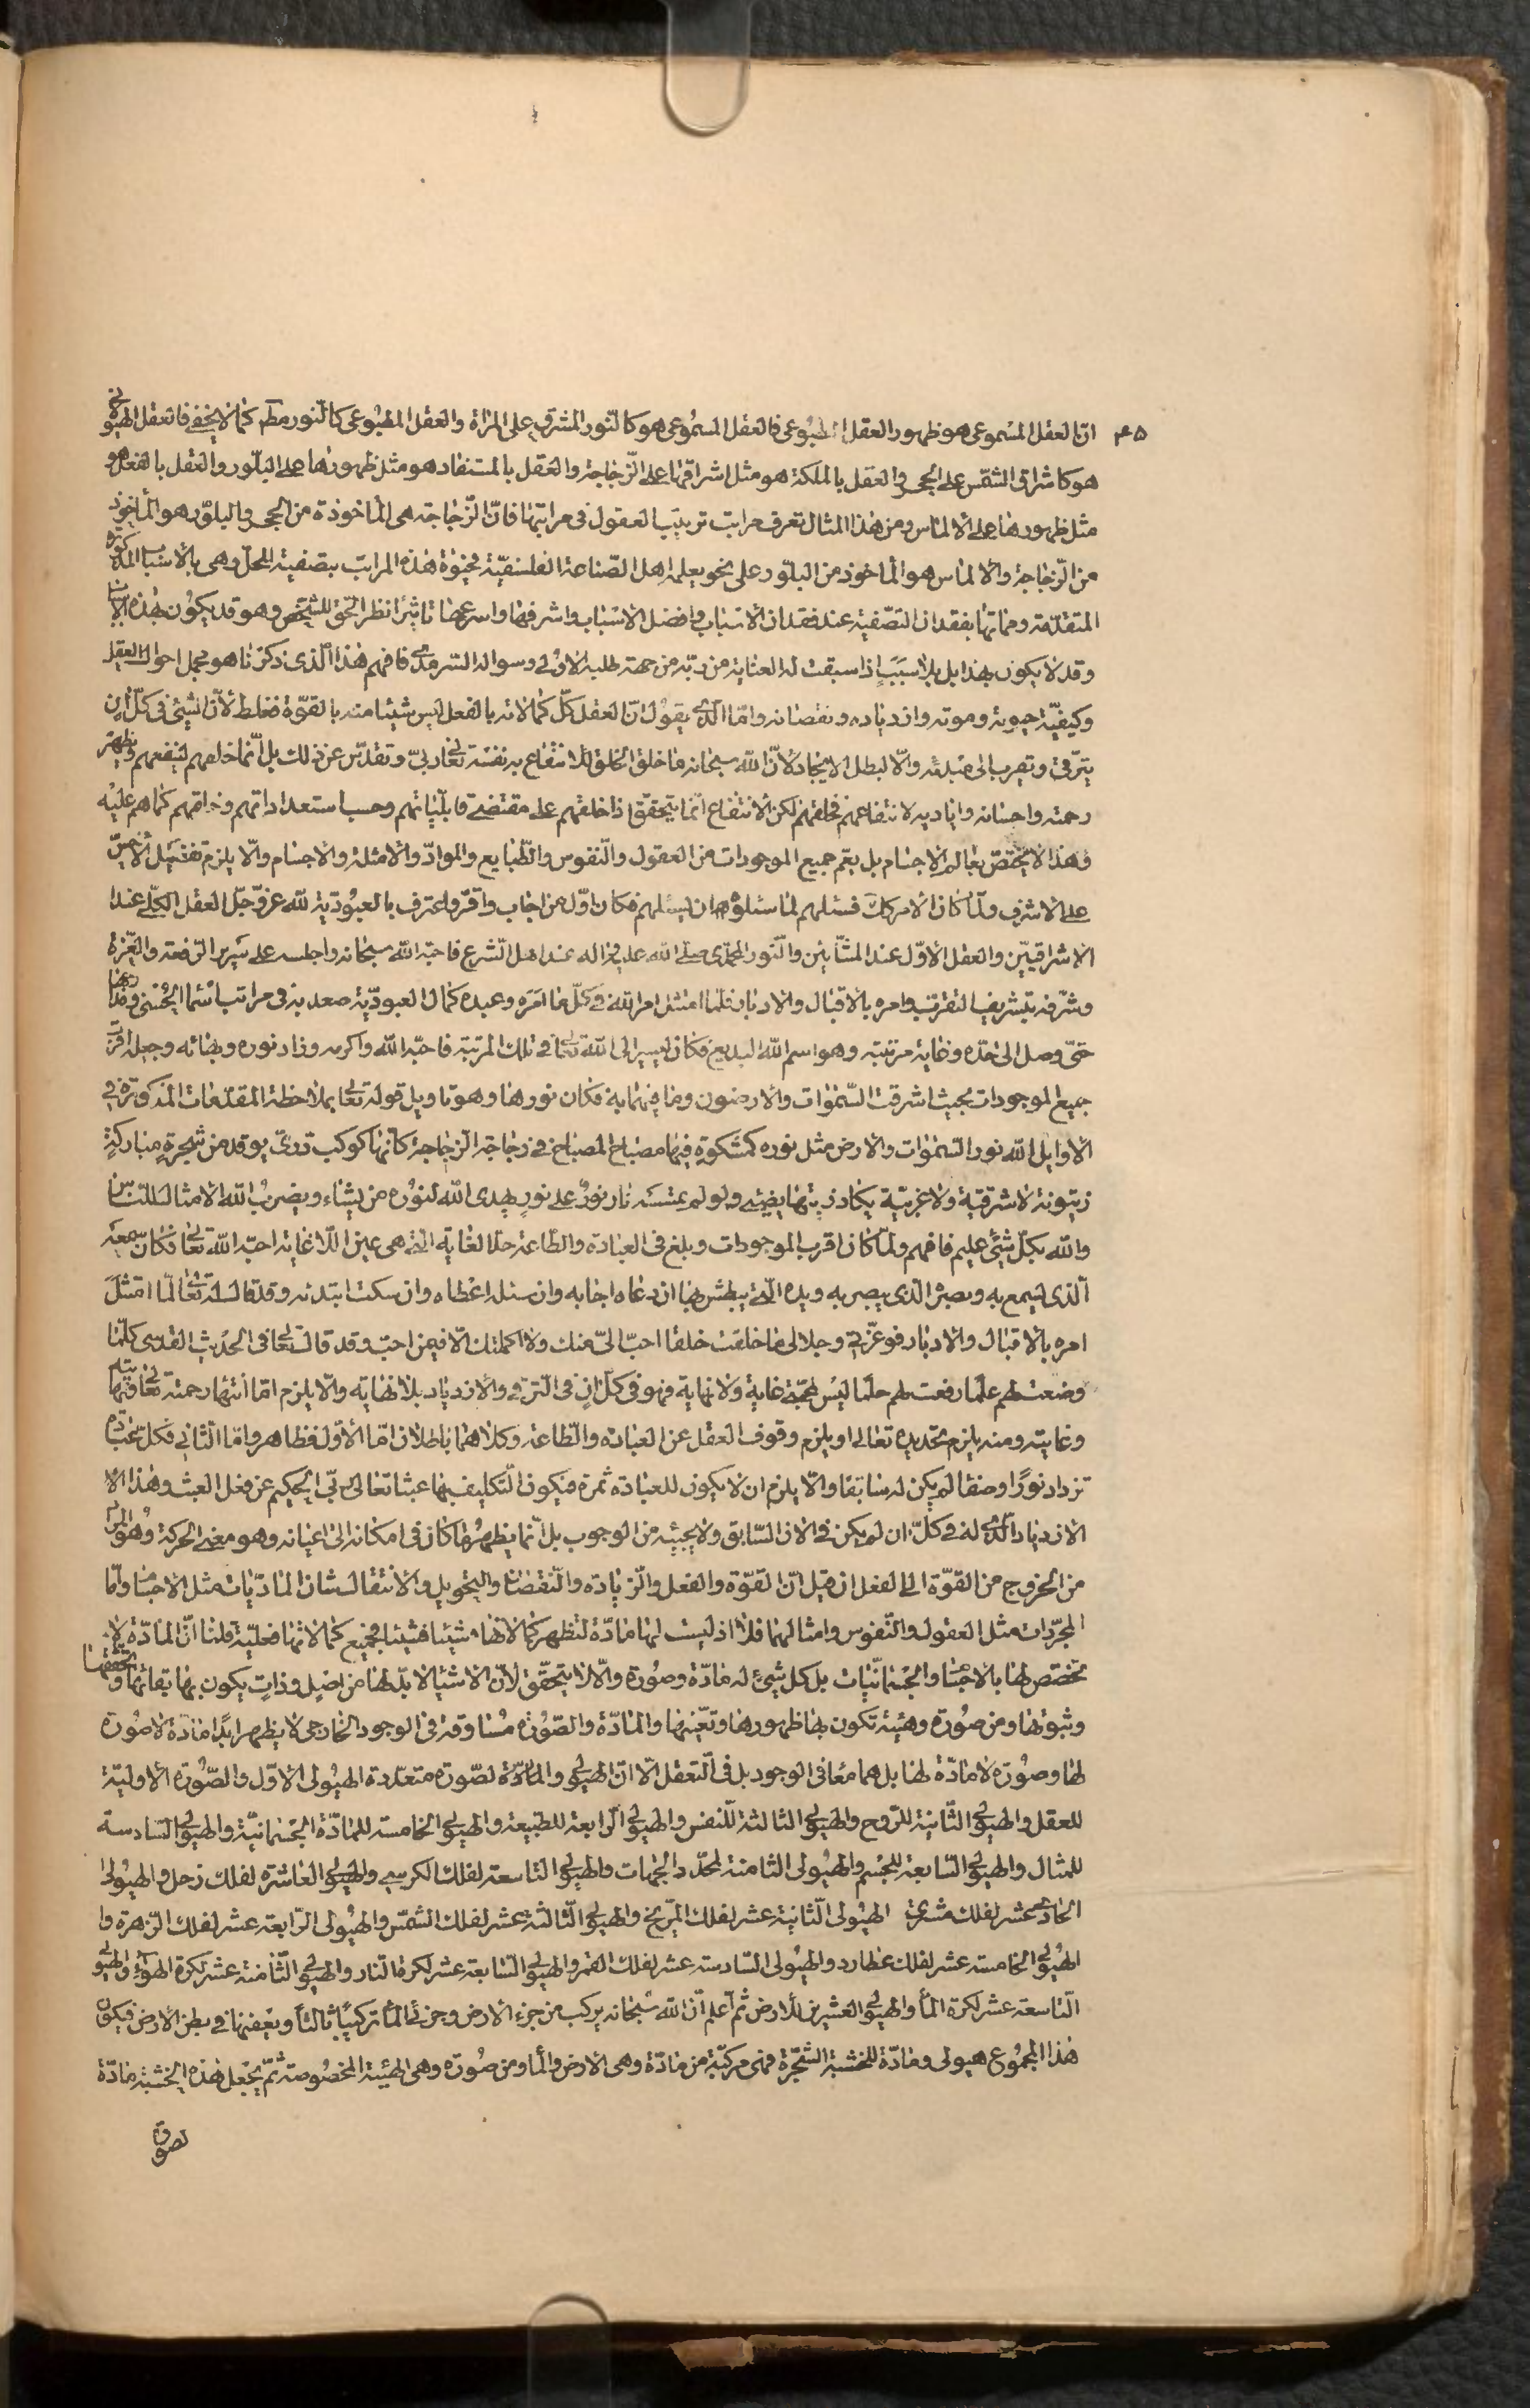 ٤٥
انّ العقل المسموعى هو ظهور العقل المطبوعى فالعقل المسموعى هو كالنّور المشرق على المراة والعقل المطبوعى كالنور مطم كما لا يخفى فالعقل الهيولانى
هو كاشراق الشمس على الحجر والعقل بالملكة هو مثل اشراقها على الزّجاجة والعقل بالمستفاد هو مثل ظهورها على البلّور والعقل بالفعل هو
مثل ظهورها على الالماس ومن هذا المثال تعرف مراتب ترتيب العقول فى مراتبها فانّ الزّجاجة هى الماخوذة من الحجر والبلّور هو الماخوذ
من الزّجاجة والالماس هو الماخوذ من البلّور على نحو يعلمه اهل الصّناعة الفلسفيّة فحيوة هذه المراتب بتصفية المحلّ وهى بالاسباب المذكورة
المتقدّمة ومماتها بفقدان التصّفية عند فقدان الاسباب وافضل الاسباب واشرفها واسرعها تاثيرًا نظر الحقّ للشّخص وهو قد يكون بهذه الاسباب
وقد لا يكون بهذا بل بلا سببٍ اذا سبقت له العناية من ربّه من جهة طلبه الاوّلى وسواله السّرمدى فافهم هذا الّذى ذكرنا هو مجمل احوال العقل
وكيفيّة حيوته وموته وازدياده ونقصانه وامّا الّذى يقول انّ العقل كلّ كمالاته بالفعل ليس شيئا منه بالقوّة فغلط لانّ الشّيئ فى كلّ ان
يترقّى ويقرب الى مبدئه والّا لبطل الايجاد لانّ الله سبحانه ما خلق الخلق للانتفاع به نفسه تعالى ربّى وتقدّس عن ذلك بل انّما خلقهم لينفعهم ويظهر
رحمته واحسانه واياديه لانتفاعهم فخلقهم لكن الانتفاع انّما يتحقّق اذا خلقهم على مقتضى قابليّاتهم وحسب استعداداتهم وخلقهم كما هم عليه
وهذا لا يختصّ بعالم الاجسام بل يعمّ جميع الموجودات من العقول والنّفوس والطّبايع والموادّ والامثلة والاجسام والّا يلزم تفضيل الاخسّ
على الاشرف ولمّا كان الامر كك فسئلهم لما سئلوه ان يسئلهم فكان اوّل من اجاب واقرّ واعترف بالعبوديّة لله عزّ وجلّ العقل الكلّى عند
الاشراقيّين والعقل الاوّل عند المشّائين والنّور المحمّدى صلّى الله عليه واله عند اهل الشّرع فاحبّه الله سبحانه واجلسه على سرير الرّفعة والعزّة
وشرّفه بتشريف التقرّب وامره بالاقبال والادبار فلمّا امتثل امر الله فى كلّ ما امره وعبده كمال العبوديّة صعد به فى مراتب اسمائه الحسنى
حتّى وصل الى حدّه وغاية مرتبته وهو اسم الله البديع فكان يسير الى الله تعالى فى تلك المرتبة فاحبّه الله واكرمه وزاد نوره وبهائه وجعله اقرب
جميع الموجودات بحيث اشرقت السّموات والارضون وما فيهما به فكان نورها وهو تاويل قوله تعالى بملاحظة المقدّمات المذكورة فى
الاوايل الله نور السّموات والارض مثل نوره كمشكوةٍ فيها مصباح المصباح فى زجاجة الزّجاجة كأنّها كوكب درّىّ يوقد من شجرةٍ مباركةٍ
زيتونة لا شرقيّة ولا غربيّة يكاد زيتها يضيئ ولو لم تمسسه نار نورٌ على نورٍ يهدى الله لنوره من يشاء ويضرب الله الامثال للنّاس
والله بكلّ شيئ عليم فافهم ولمّا كان اقرب الموجودات وبلغ فى العبادة والطّاعة حدّ الغاية الّتى هى عين اللّا غاية احبّه الله تعالى فكان سمعه
الّذى يسمع به وبصره الّذى يبصر به ويده الّتى يبطش بها ان دعاه اجابه وان سئله اعطاه وان سكت ابتدئه وقد قال له تعالى لمّا امتثل
امره بالاقبال والادبار فوعزّتى وجلالى ما خلقت خلقا احبّ الىّ منك ولا اكملتك الّا فيمن احبّ وقد قال تعالى فى الحديث القدسى كلّما
وضعت لهم علما رفعت لهم حلما ليس لمحبّتى غاية ولا نهاية فهو فى كلّ انٍ فى التّرقّى والازدياد بلا نهاية والّا يلزم امّا انتهاء رحمته تعالى
وغايته ومنه يلزم تحديده تعالى او يلزم وقوف العقل عن العبادة والطّاعة وكلاهما باطلان امّا الاوّل فظاهر وامّا الثّانى فكلّ عبادة
تزداد نورًا وصفا لم يكن له سابقا والّا يلزم ان لا يكون للعبادة ثمرة فيكون التّكليف بها عبثا تعالى ربّى الحكيم عن فعل العبث وهذا
الازدياد الّذى له فى كلّ ان لم يكن فى الان السّابق ولا يجيئه من الوجوب بل انّما يظهر ما كان فى امكانه الى اعيانه وهو معنى الحركة وهو المراد
من الخروج من القوّة الى الفعل ان قيل انّ القوّة والفعل والزّيادة والنّقصان والتحويل والانتقال شان المادّيّات مثل الاجسام وامّا
المجرّدات مثل العقول والنّفوس وامثالهما فلا اذ ليست لها مادّة لتظهر كمالاتها شيئا فشيئا فجميع كمالاتها فعليّة قلنا انّ المادّة لا
تختصّ لها بالاجسام والجسمانيّات بل كلّ شيئ له مادّة وصورة والّا لا يتحقّق لانّ الاشياء لا بدّ لها من اصل وذاتٍ يكون بها بقائها وتحقّقها
وثبوتها ومن صورة وهيئة تكون بها ظهورها وتعيّنها والمادّة والصّورة مساوقة فى الوجود الخارجى لا يظهر ابدًا مادّة لا صورة
لها وصورة لا مادّة لها بل هما معًا فى الوجود بل فى التّعقّل الّا انّ الهيولى والمادّة لصورة متعدّدة الهيولى الاوّل والصّورة الاوليّة
للعقل والهيولى الثّانية للرّوح والهيولى الثالثة للنّفس والهيولى الرّابعة للطّبيعة والهيولى الخامسة للمادّة الجسمانيّة والهيولى السّادسة
للمثال والهيولى السّابعة للجسم والهيولى الثامنة لمحدّد الجهات والهيولى التّاسعة لفلك الكرسى والهيولى العاشرة لفلك زحل والهيولى
الحادى عشر لفلك مشترى الهيولى الثّانية عشر لفلك المرّيخ والهيولى الثّالثة عشر لفلك الشّمس والهيولى الرّابعة عشر لفلك الزّهرة وا
لهيولى الخامسة عشر لفلك عطارد والهيولى السّادسة عشر لفلك القمر والهيولى السّابعة عشر لكرة النار والهيولى الثّامنة عشر لكرة الهواء والهيولى
التّاسعة عشر لكرة الماء والهيولى العشرين للارض ثمّ اعلم انّ الله سبحانه يركّب من جزء الارض وجزئى الماء تركيبًا ثالثا ويعفّنها فى بطن الارض فيكون
هذا المجموع هيولى ومادّة للخشبة الشّجرة فهى مركبّة من مادّة وهى الارض والماء ومن صورة وهى الهيئة المخصوصة ثمّ يجعل هذه الخشبة مادّة
لصورة